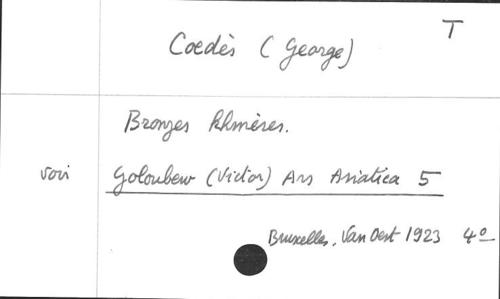 T
Coedès (George)
Bronzes khmères.
voir Goloubew (Victor) Ars Asiatica 5
Bruxelles, Van Oest 1923 4º